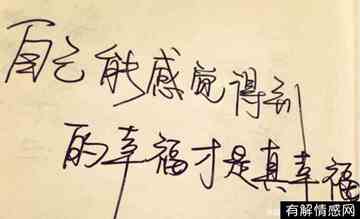 自己能感觉得到
的幸福才是真幸福
有解情感网